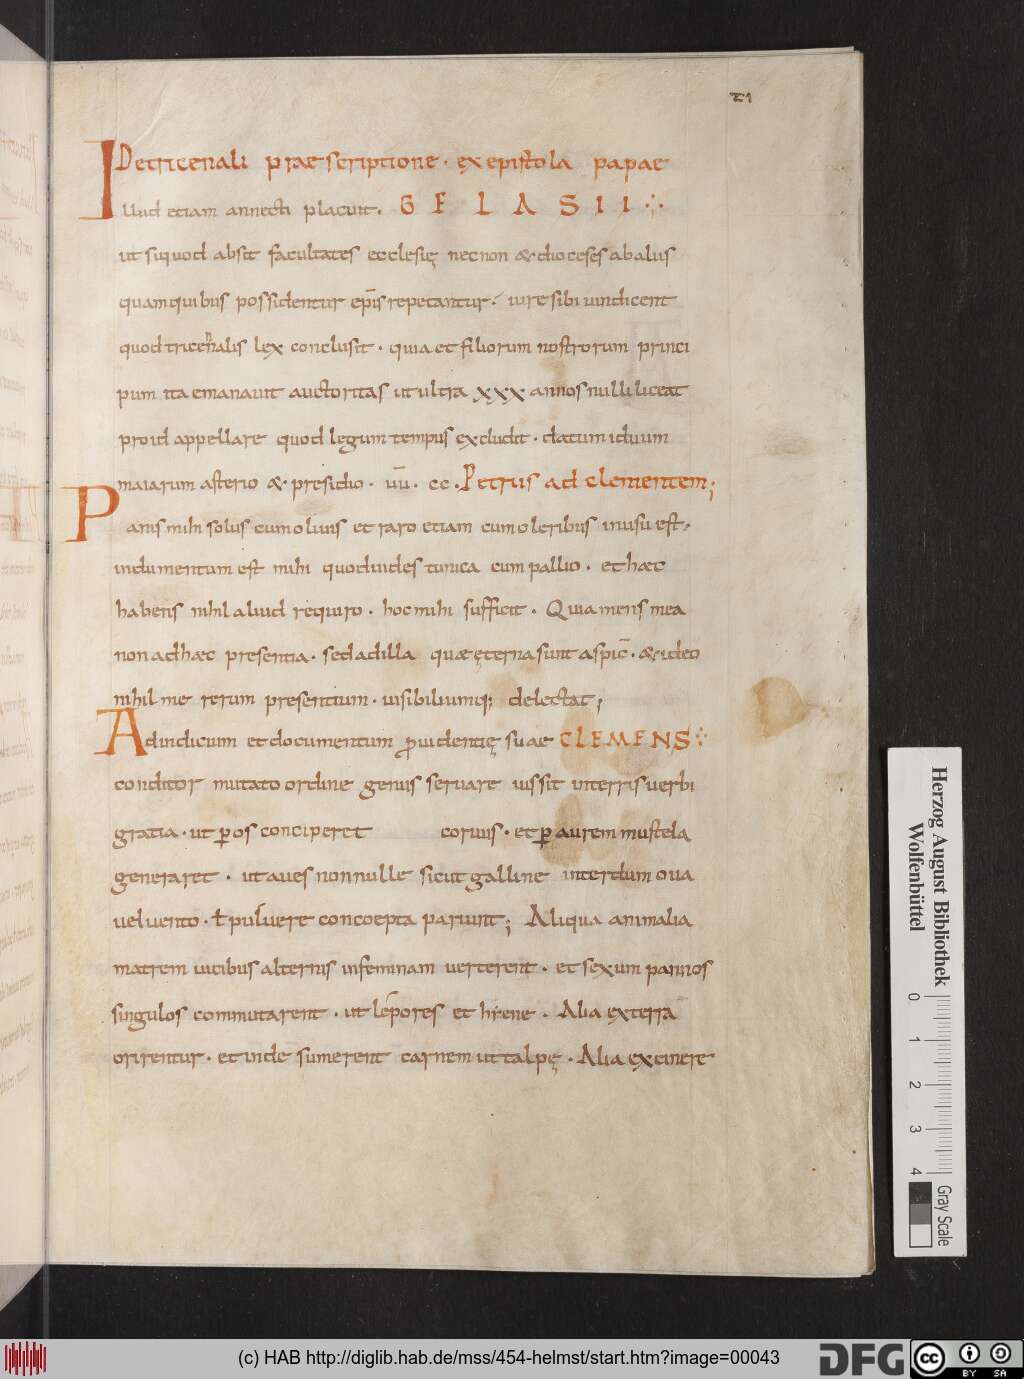 21
De tricenali praescriptione · ex epistola papae
Illud etiam annecti placuit. GELASII
ut siquod absit facultates ecclesię necnon & dioceses abalus
quam quibus possidentur ep̄is repetantur · iure sibi uindicent
quod tricennalis lex conclusit · quia et filiorum nostrorum princi
pum ita emanauit auctoritas ut ultra xxx annos nulli liceat
pro id appellare quod legum tempus excludit · datum iduum
maiarum asterio & presidio · uū · cc · Petrus ad clementem;
Panis mihi solus cum oliuis et raro etiam cum oleribus in usu est,
indumentum est mihi quod uides tunica cum pallio · et haec
habens nihil aliud requiro · hoc mihi sufficit · Quia mens mea
non ad haec presentia · sed ad illa quae ęterna sunt aspic̄ · & ideo
nihil me rerum presentium · uisibiliumq; delectat;
Ad indicium et documentum ꝓuidentię suae CLEMENS
conditor mutato ordine genus seruare iussit in terris uerbi
gratia · ut ꝑ os conciperet coruus · et ꝑ aurem mustela
generaret · ut aues nonnulle sicut galline interdum oua
uel uento · ł puluere concoepta pariunt; Aliqua animalia
matrem uicibus alternis in feminam uerterent · et sexum pannos
singulos commutarent · ut lepores et hiene · Alia ex terra
orirentur · et inde sumerent carnem ut talpę · Alia ex cinere
Herzog August Bibliothek
Wolfenbüttel
0 1 2 3 4
Gray Scale
(c) HAB http://diglib.hab.de/mss/454-helmst/start.htm?image=00043
DFG
cc
BY SA